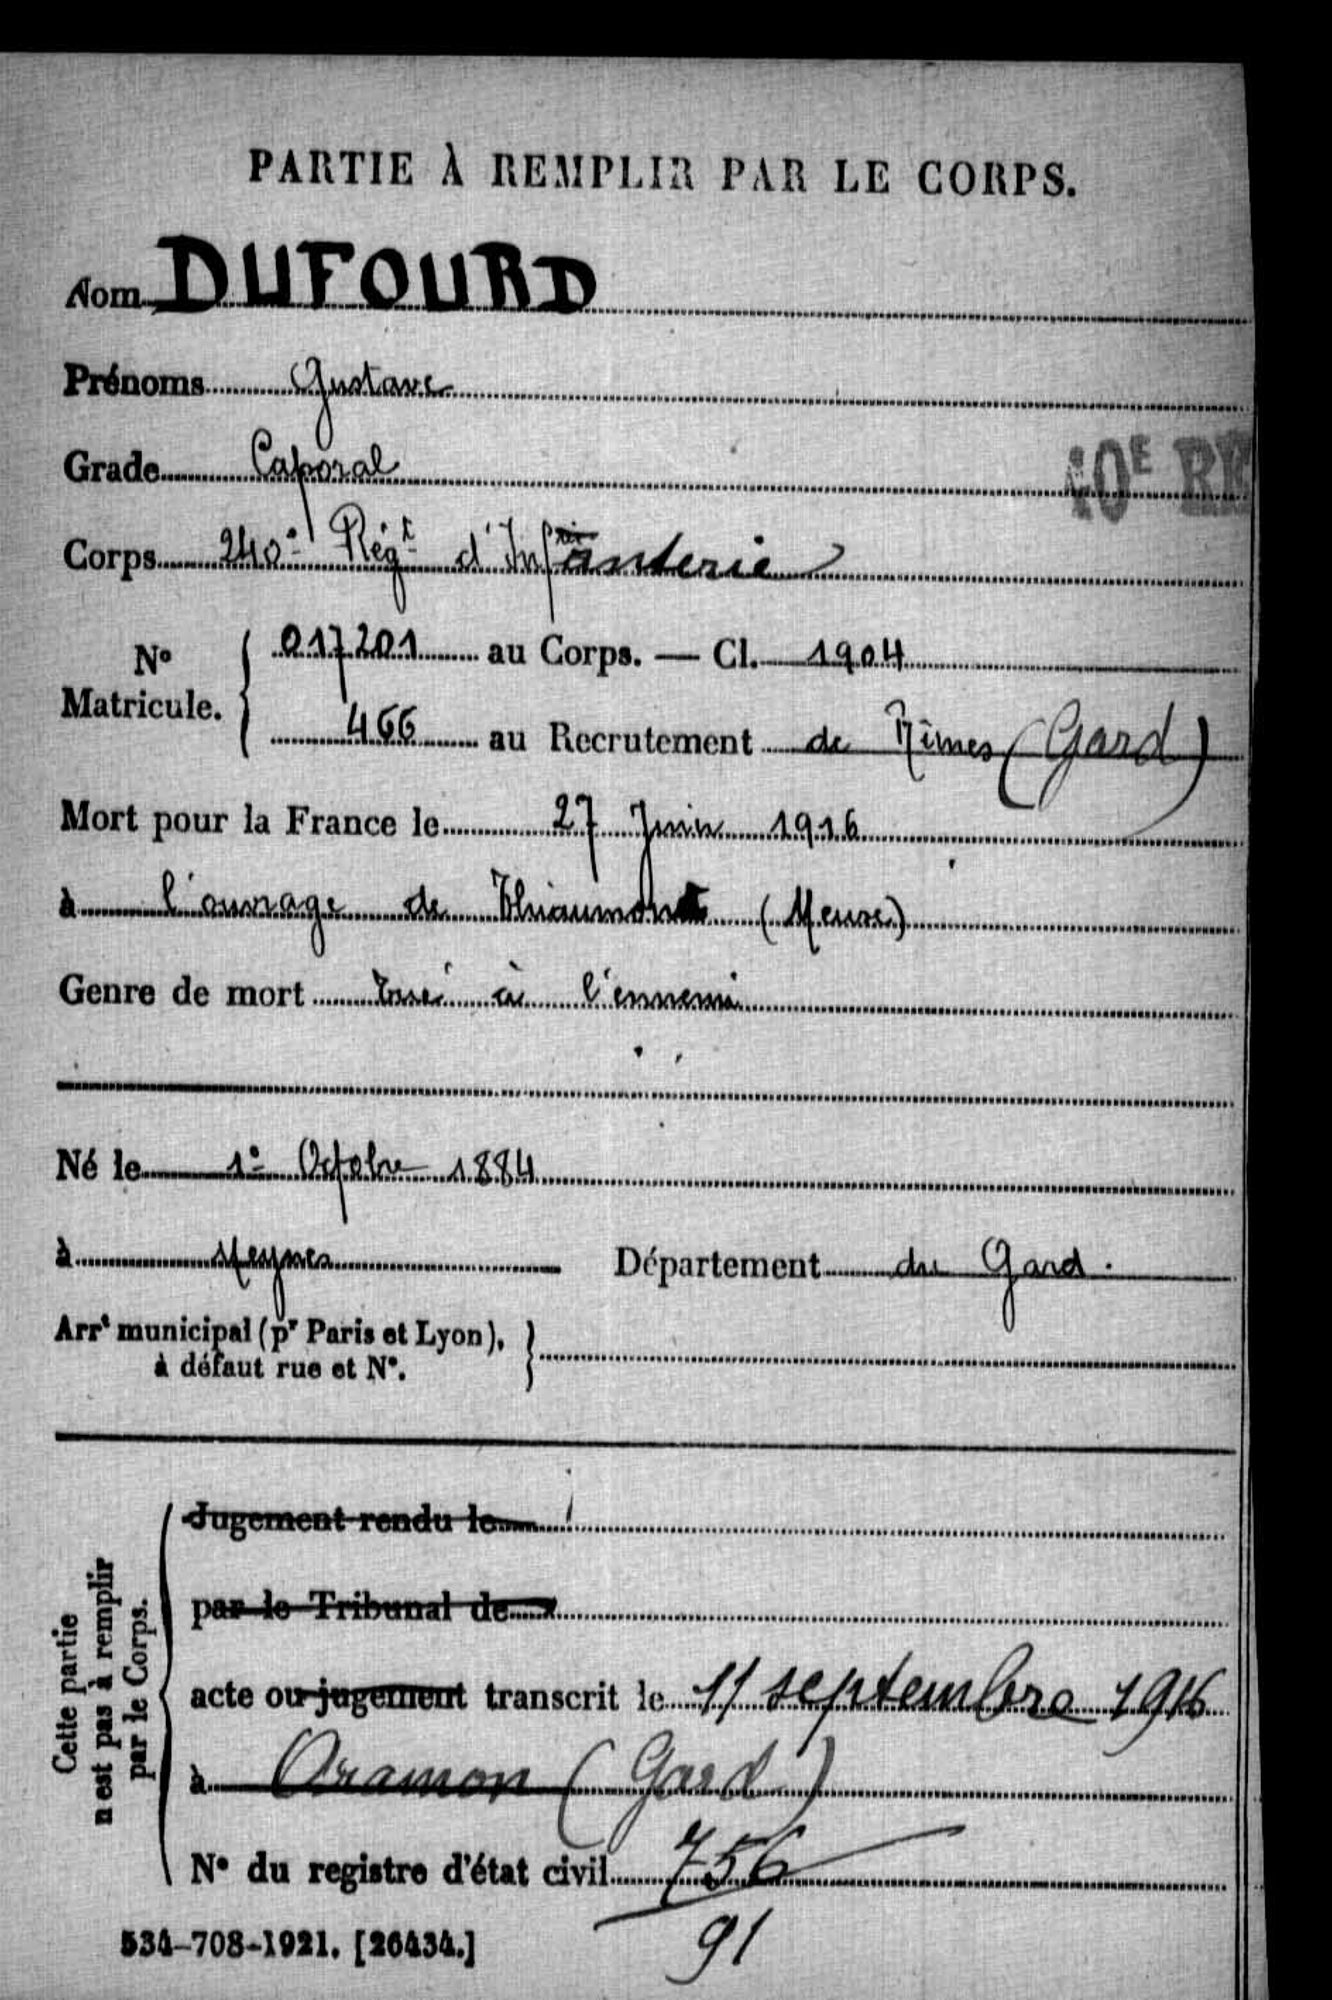 PARTIE À REMPLIR PAR LE CORPS.
Nom DUFOURD
Prénoms Gustave
Grade Caporal
40E RE
Corps 240e Régt d'Infanterie
N° Matricule. 017201 au Corps. — Cl. 1904
466 au Recrutement de Nîmes (Gard)
Mort pour la France le 27 Juin 1916
à l'ouvrage de Thiaumont (Meuse)
Genre de mort tué à l'ennemi
Né le 1er Octobre 1884
à Meynes Département du Gard.
Arrt municipal (pr Paris et Lyon),
à défaut rue et N°.
Cette partie
n'est pas à remplir
par le Corps.
Jugement rendu le
par le Tribunal de
acte ou jugement transcrit le 11 septembre 1916
à Aramon (Gard)
N° du registre d'état civil 756
91
534-708-1921. [26434.]